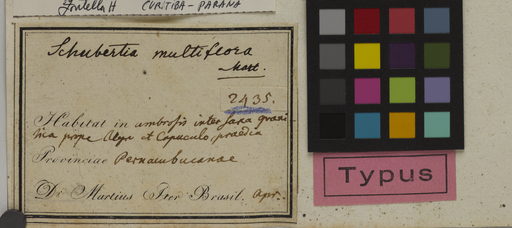 Fontella H CURITIBA - PARANÁ
Schubertia multiflora
Mart.
2435.
Habitat in umbrosis inter saxa grani-
tica prope et praedia
Provinciae Pernambucanae
Dr Martius Iter Brasil. Apr.
Typus